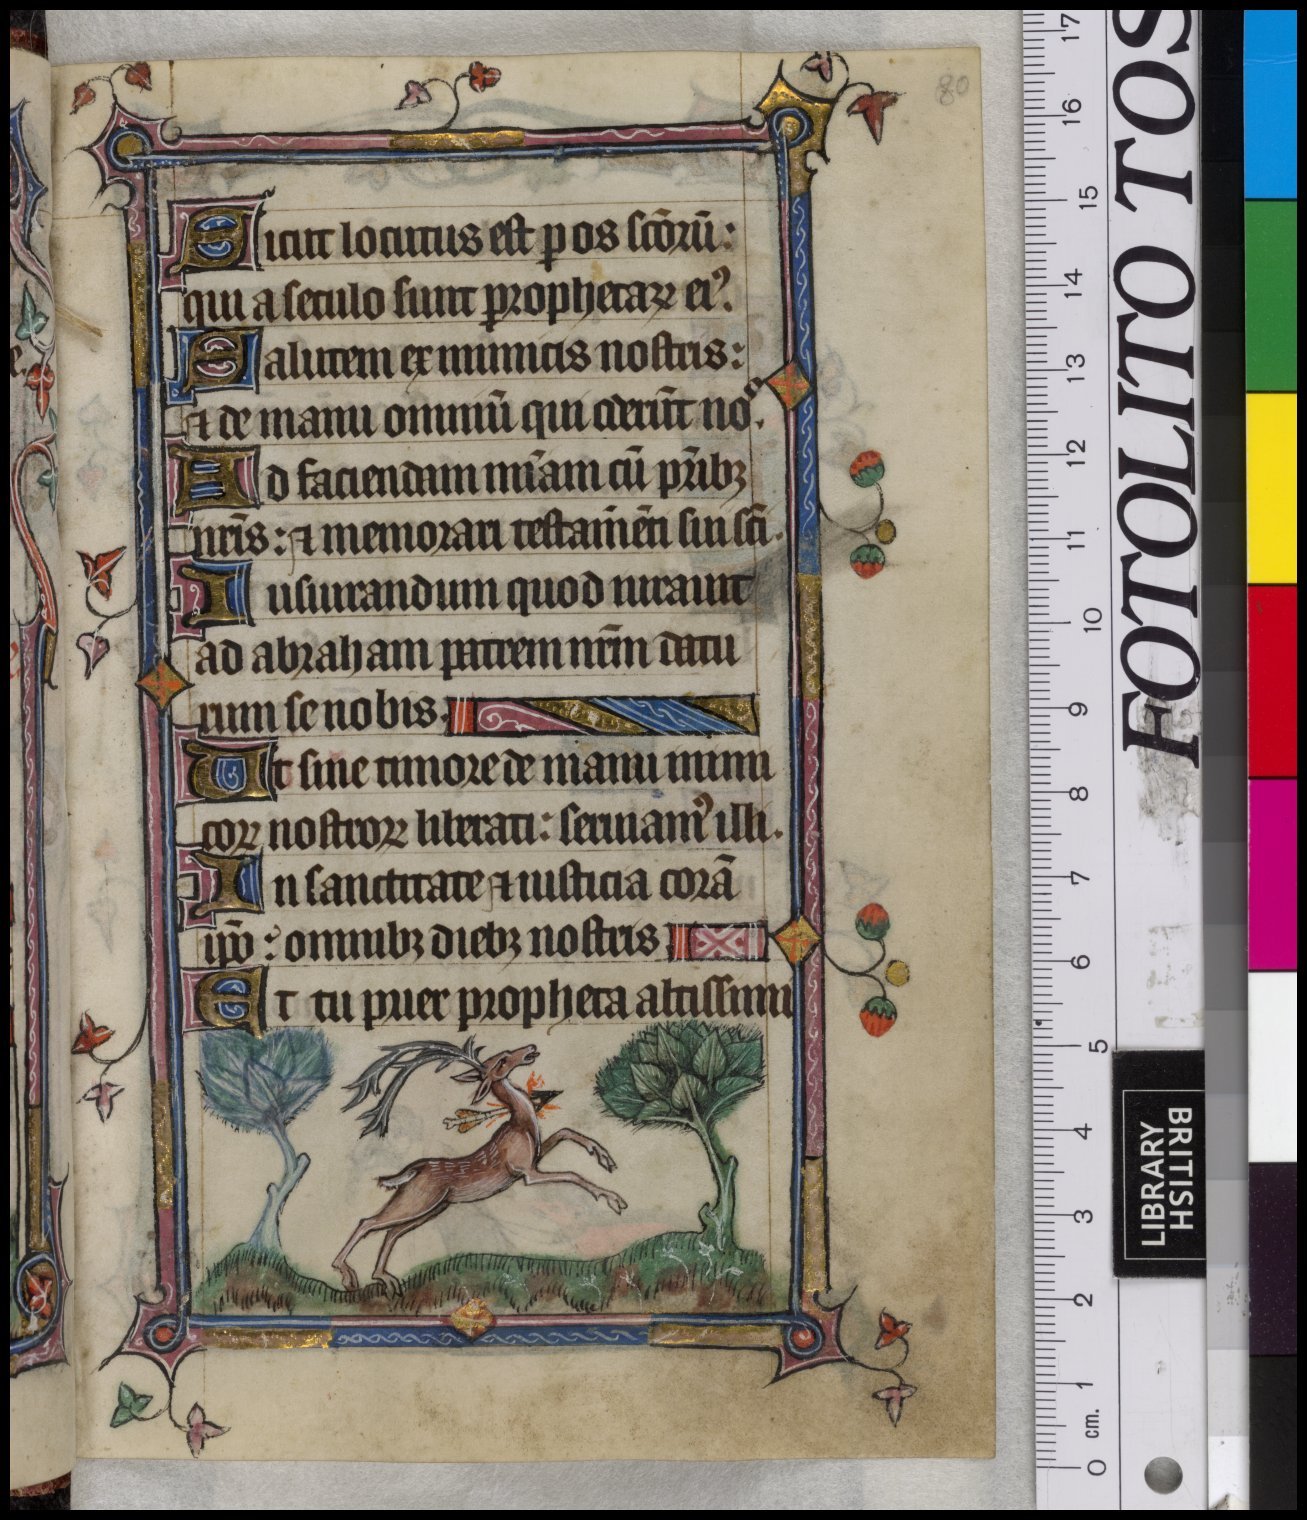 80
Sicut locutus est p os scōrū:
qui a seculo sunt prophetaꝝ eiꝰ.
Salutem ex inimicis nostris:
⁊ de manu omniū qui oderūt noˢ.
Ad faciendam mīam cū pr̄ibꝫ
nr̄is: ⁊ memorari testam̄ēti sui sc̄i.
Iusiurandum quod iurauit
ad abraham patrem nr̄m datu
rum se nobis.
Ut sine timore de manu inimi
coꝝ nostroꝝ liberati: seruiamꝰ illi.
In sanctitate ⁊ iusticia corā
ip̄o: omnibꝫ diebꝫ nostris.
Et tu puer propheta altissimi
FOTOLITO TOS
BRITISH
LIBRARY
0 cm. 1 2 3 4 5 6 7 8 9 10 11 12 13 14 15 16 17